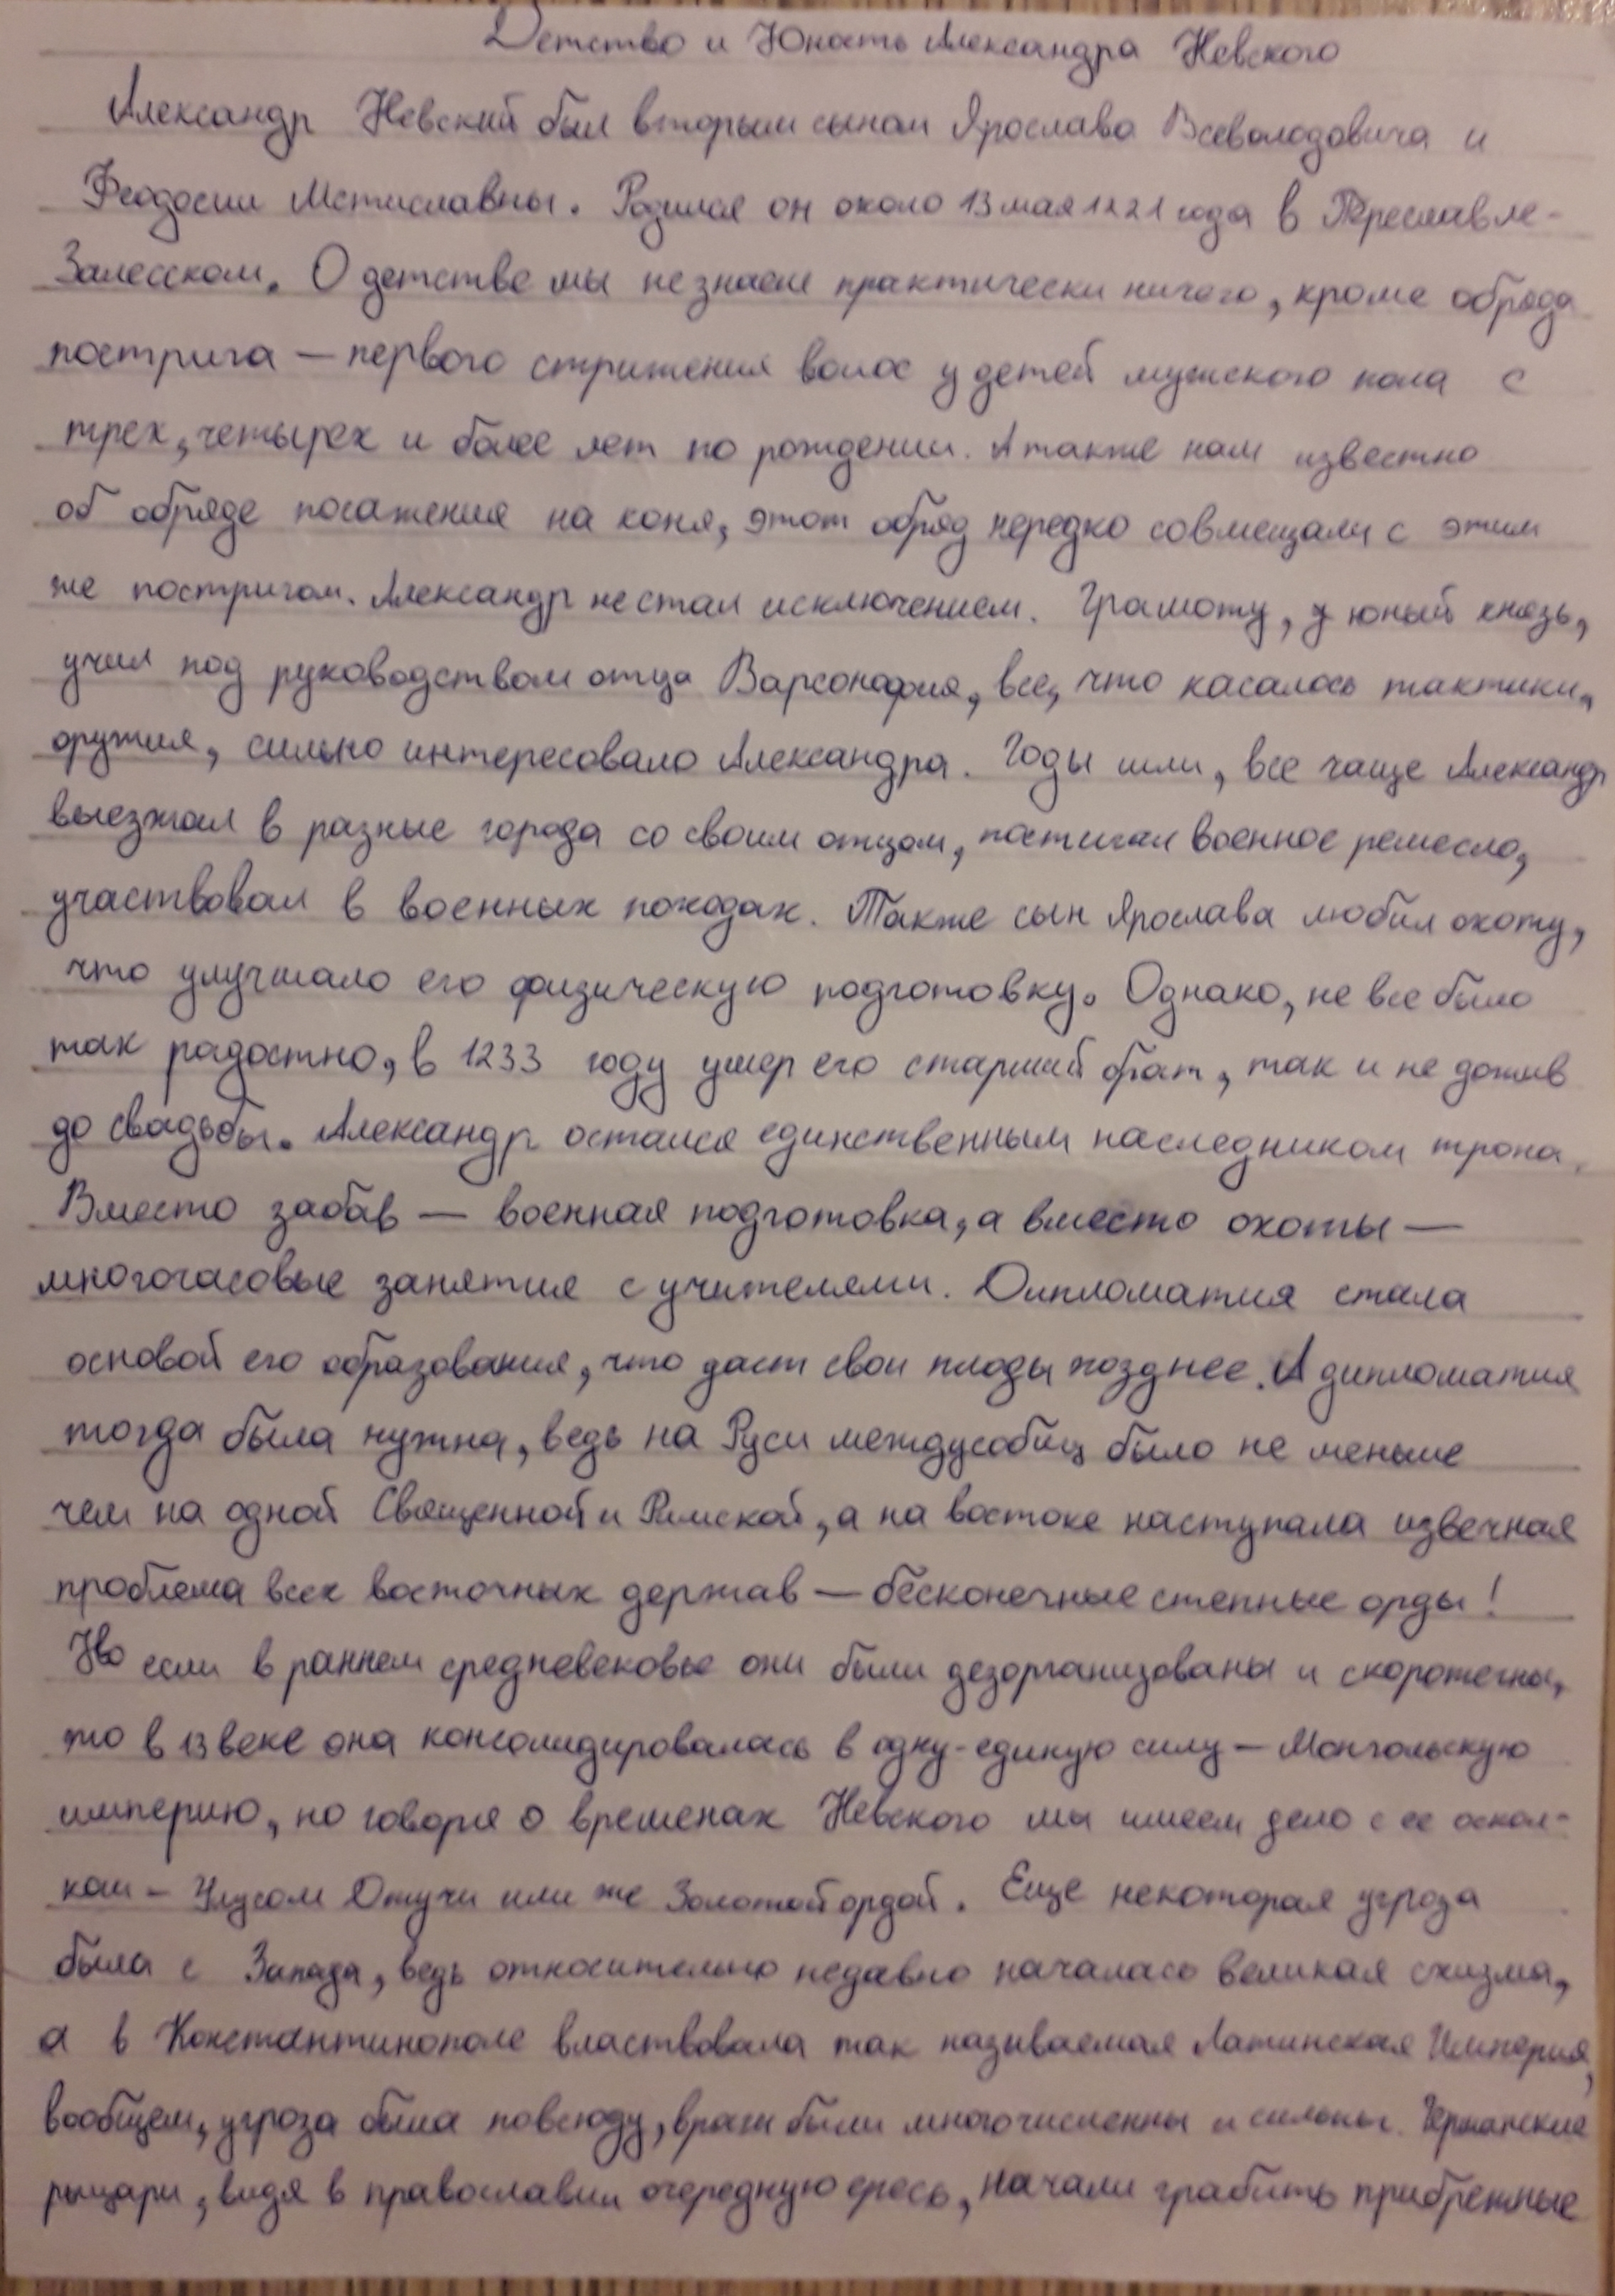 Детство и Юность Александра Невского
Александр Невский был вторым сыном Ярослава Всеволодовича и
Феодосии Мстиславны. Родился он около 13 мая 1221 года в Переславле-
Залесском. О детстве мы не знаем практически ничего, кроме обряда
пострига — первого стрижения волос у детей мужского пола с
трех, четырех и более лет по рождении. А также нам известно
об обряде посажения на коня, этот обряд нередко совмещали с этим
же постригом. Александр не стал исключением. Грамоту, юный князь,
учил под руководством отца Варсонофия, все, что касалось тактики,
оружия, сильно интересовало Александра. Годы шли, все чаще Александр
выезжал в разные города со своим отцом, постигал военное ремесло,
участвовал в военных походах. Также сын Ярослава любил охоту,
что улучшало его физическую подготовку. Однако, не все было
так радостно, в 1233 году умер его старший брат, так и не дожив
до свадьбы. Александр остался единственным наследником трона.
Вместо забав — военная подготовка, а вместо охоты —
многочасовые занятия с учителями. Дипломатия стала
основой его образования, что даст свои плоды позднее. А дипломатия
тогда была нужна, ведь на Руси междусобиц было не меньше
чем на одной Священной и Римской, а на востоке наступала извечная
проблема всех восточных держав — бесконечные степные орды!
Но если в раннем средневековье они были дезорганизованы и скоротечны,
то в 13 веке она консолидировалась в одну-единую силу — Монгольскую
империю, но говоря о временах Невского мы имеем дело с ее оскол-
ком – Улусом Джучи или же Золотой ордой. Еще некоторая угроза
была с Запада, ведь относительно недавно началась великая схизма,
а в Константинополе властвовала так называемая Латинская Империя,
вообщем, угроза была повсюду, враги были многочисленны и сильны. Германские
рыцари, видя в православии очередную ересь, начали грабить прибрежные